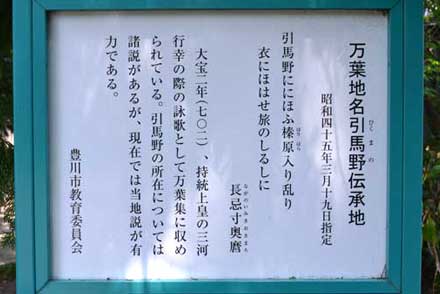 万葉地名引馬野伝承地
ひくまの
昭和四十五年三月十九日指定
引馬野ににほふ榛原入り乱り
はりはら
衣にほはせ旅のしるしに
長忌寸奥麿
ながのいみきおきまろ
大宝二年(七〇二)、持統上皇の三河
行幸の際の詠歌として万葉集に収め
られている。引馬野の所在については
諸説があるが、現在では当地説が有
力である。
豊川市教育委員会